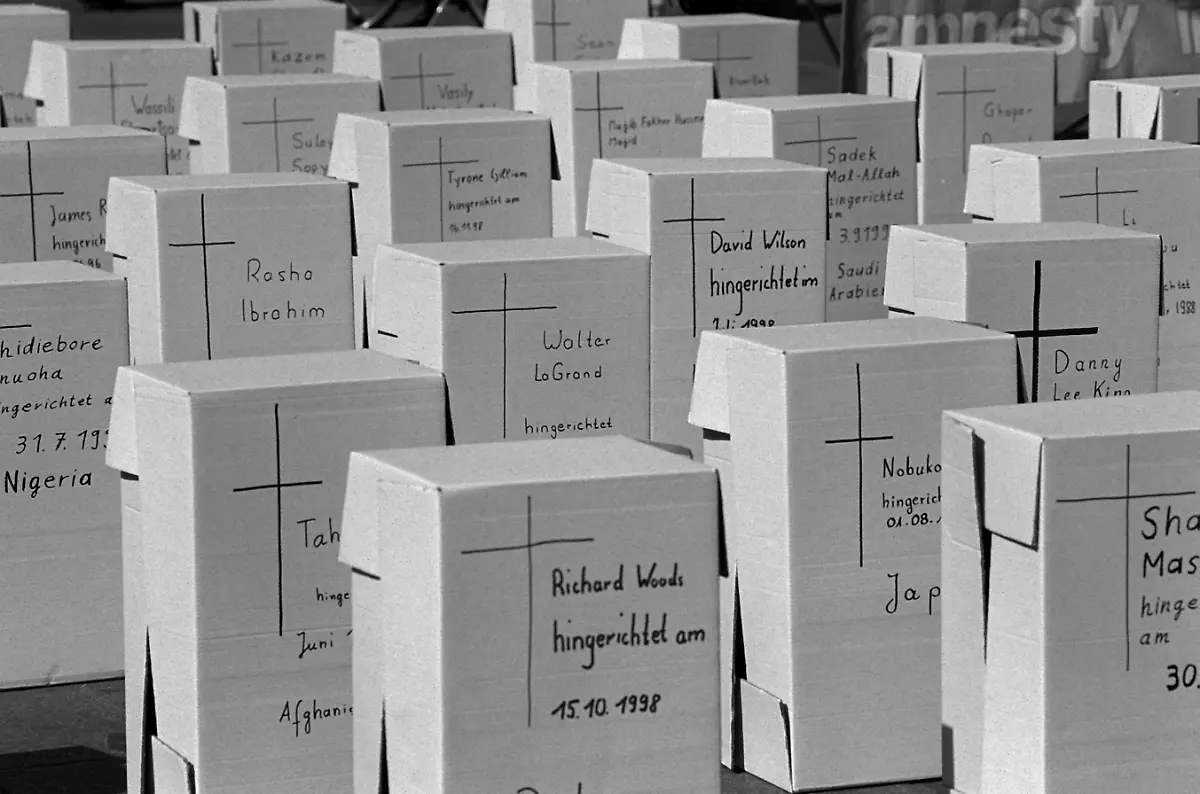 amnesty
Kazem
Sean
Wassili
Vasily
Ghaper
Suley
Sopy
Majib Fakher Hussein
Majid
Sadek
Mal-Allah
hingerichtet
am
3.9.199
Saudi
Arabien
Tyrone Gilliam
hingerichtet am
16.11.98
James R
hingerich
96
Rasha
Ibrahim
David Wilson
hingerichtet im
1998
Li
u
chtet
, 1988
Walter
LaGrand
hingerichtet
Danny
Lee King
hidiebore
nuoha
ingerichtet a
31.7.199
Nigeria
Tah
hinge
Juni
Afghanis
Richard Woods
hingerichtet am
15.10.1998
Nobuko
hingerich
01.08.
Jap
Sha
Mas
hinge
am
30.